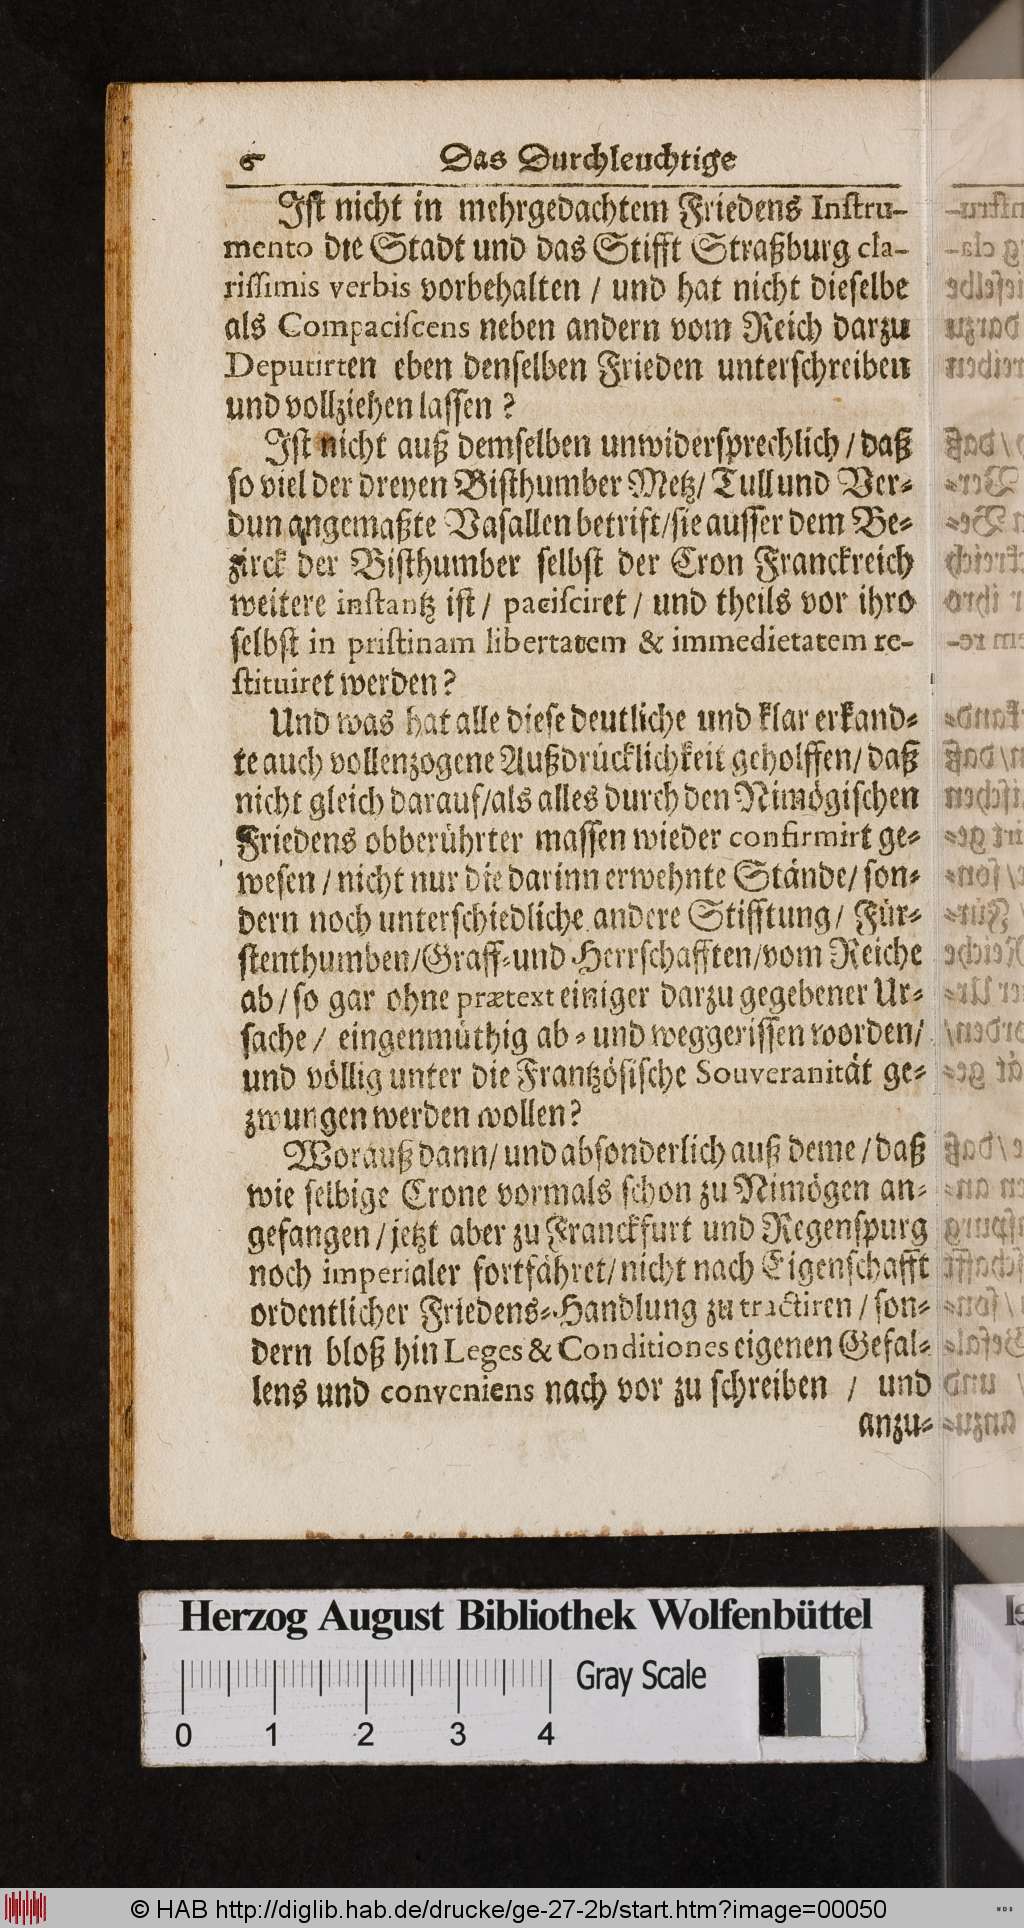 6 Das Durchleuchtige
Ist nicht in mehrgedachtem Friedens Instru-
mento die Stadt und das Stifft Straßburg cla-
rissimis verbis vorbehalten / und hat nicht dieselbe
als Compaciscens neben andern vom Reich darzu
Deputirten eben denselben Frieden unterschreiben
und vollziehen lassen ?
Ist nicht auß demselben unwidersprechlich / daß
so viel der dreyen Bisthumber Metz/ Tull und Ver-
dun angemaßte Vasallen betrift/sie ausser dem Be-
zirck der Bisthumber selbst der Cron Franckreich
weitere instantz ist / pacisciret / und theils vor ihro
selbst in pristinam libertatem & immedietatem re-
stituiret werden ?
Und was hat alle diese deutliche und klar erkand-
te auch vollenzogene Außdrücklichkeit geholffen/ daß
nicht gleich darauf/als alles durch den Nimögischen
Friedens obberührter massen wieder confirmirt ge-
wesen / nicht nur die darinn erwehnte Stände/ son-
dern noch unterschiedliche andere Stifftung/ Für-
stenthumben/Graff-und Herrschafften/vom Reiche
ab / so gar ohne prætext einiger darzu gegebener Ur-
sache / eingenmüthig ab - und weggerissen worden/
und völlig unter die Frantzösische Souveranität ge-
zwungen werden wollen?
Worauß dann/ und absonderlich auß deme / daß
wie selbige Crone vormals schon zu Nimögen an-
gefangen / jetzt aber zu Franckfurt und Regenspurg
noch imperialer fortfähret/ nicht nach Eigenschafft
ordentlicher Friedens-Handlung zu tractiren / son-
dern bloß hin Leges & Conditiones eigenen Gefal-
lens und conveniens nach vor zu schreiben / und
anzu-
Herzog August Bibliothek Wolfenbüttel
Gray Scale
0 1 2 3 4
© HAB http://diglib.hab.de/drucke/ge-27-2b/start.htm?image=00050